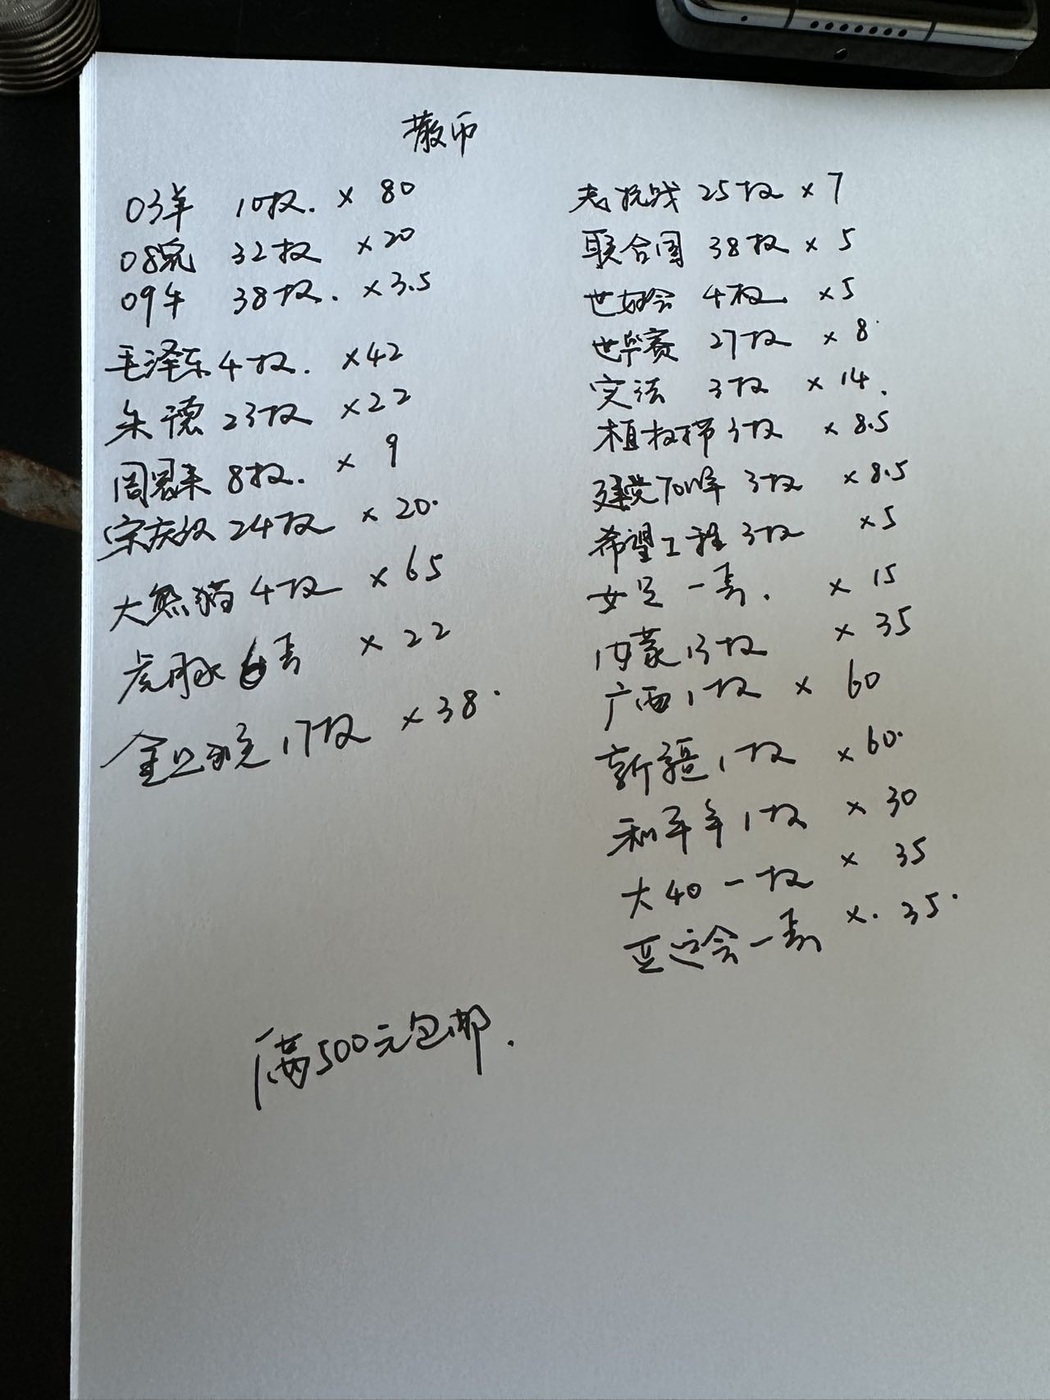 散币
03羊 10枚. × 80
08鼠 32枚 ×20
09牛 38枚. ×3.5
毛泽东 4枚. ×42
朱德 23枚 ×22
周恩来 8枚. × 9
宋庆龄 24枚 × 20.
大熊猫 4枚 × 65
虎豚 6套 × 22
金丝猴 17枚 × 38.
老抗战 25枚 × 7
联合国 38枚 × 5
世妇会 4枚 ×5
世乒赛 27枚 × 8
宪法 3枚 × 14.
植树节 3枚 × 8.5
建党70周年 3枚 × 8.5
希望工程 3枚 ×5
女足 一套. × 15
内蒙 13枚 × 35
广西 1枚 × 60
新疆 1枚 ×60.
和平年 1枚 × 30
大40 一枚 × 35
亚运会 一套 ×. 35.
满500元包邮.